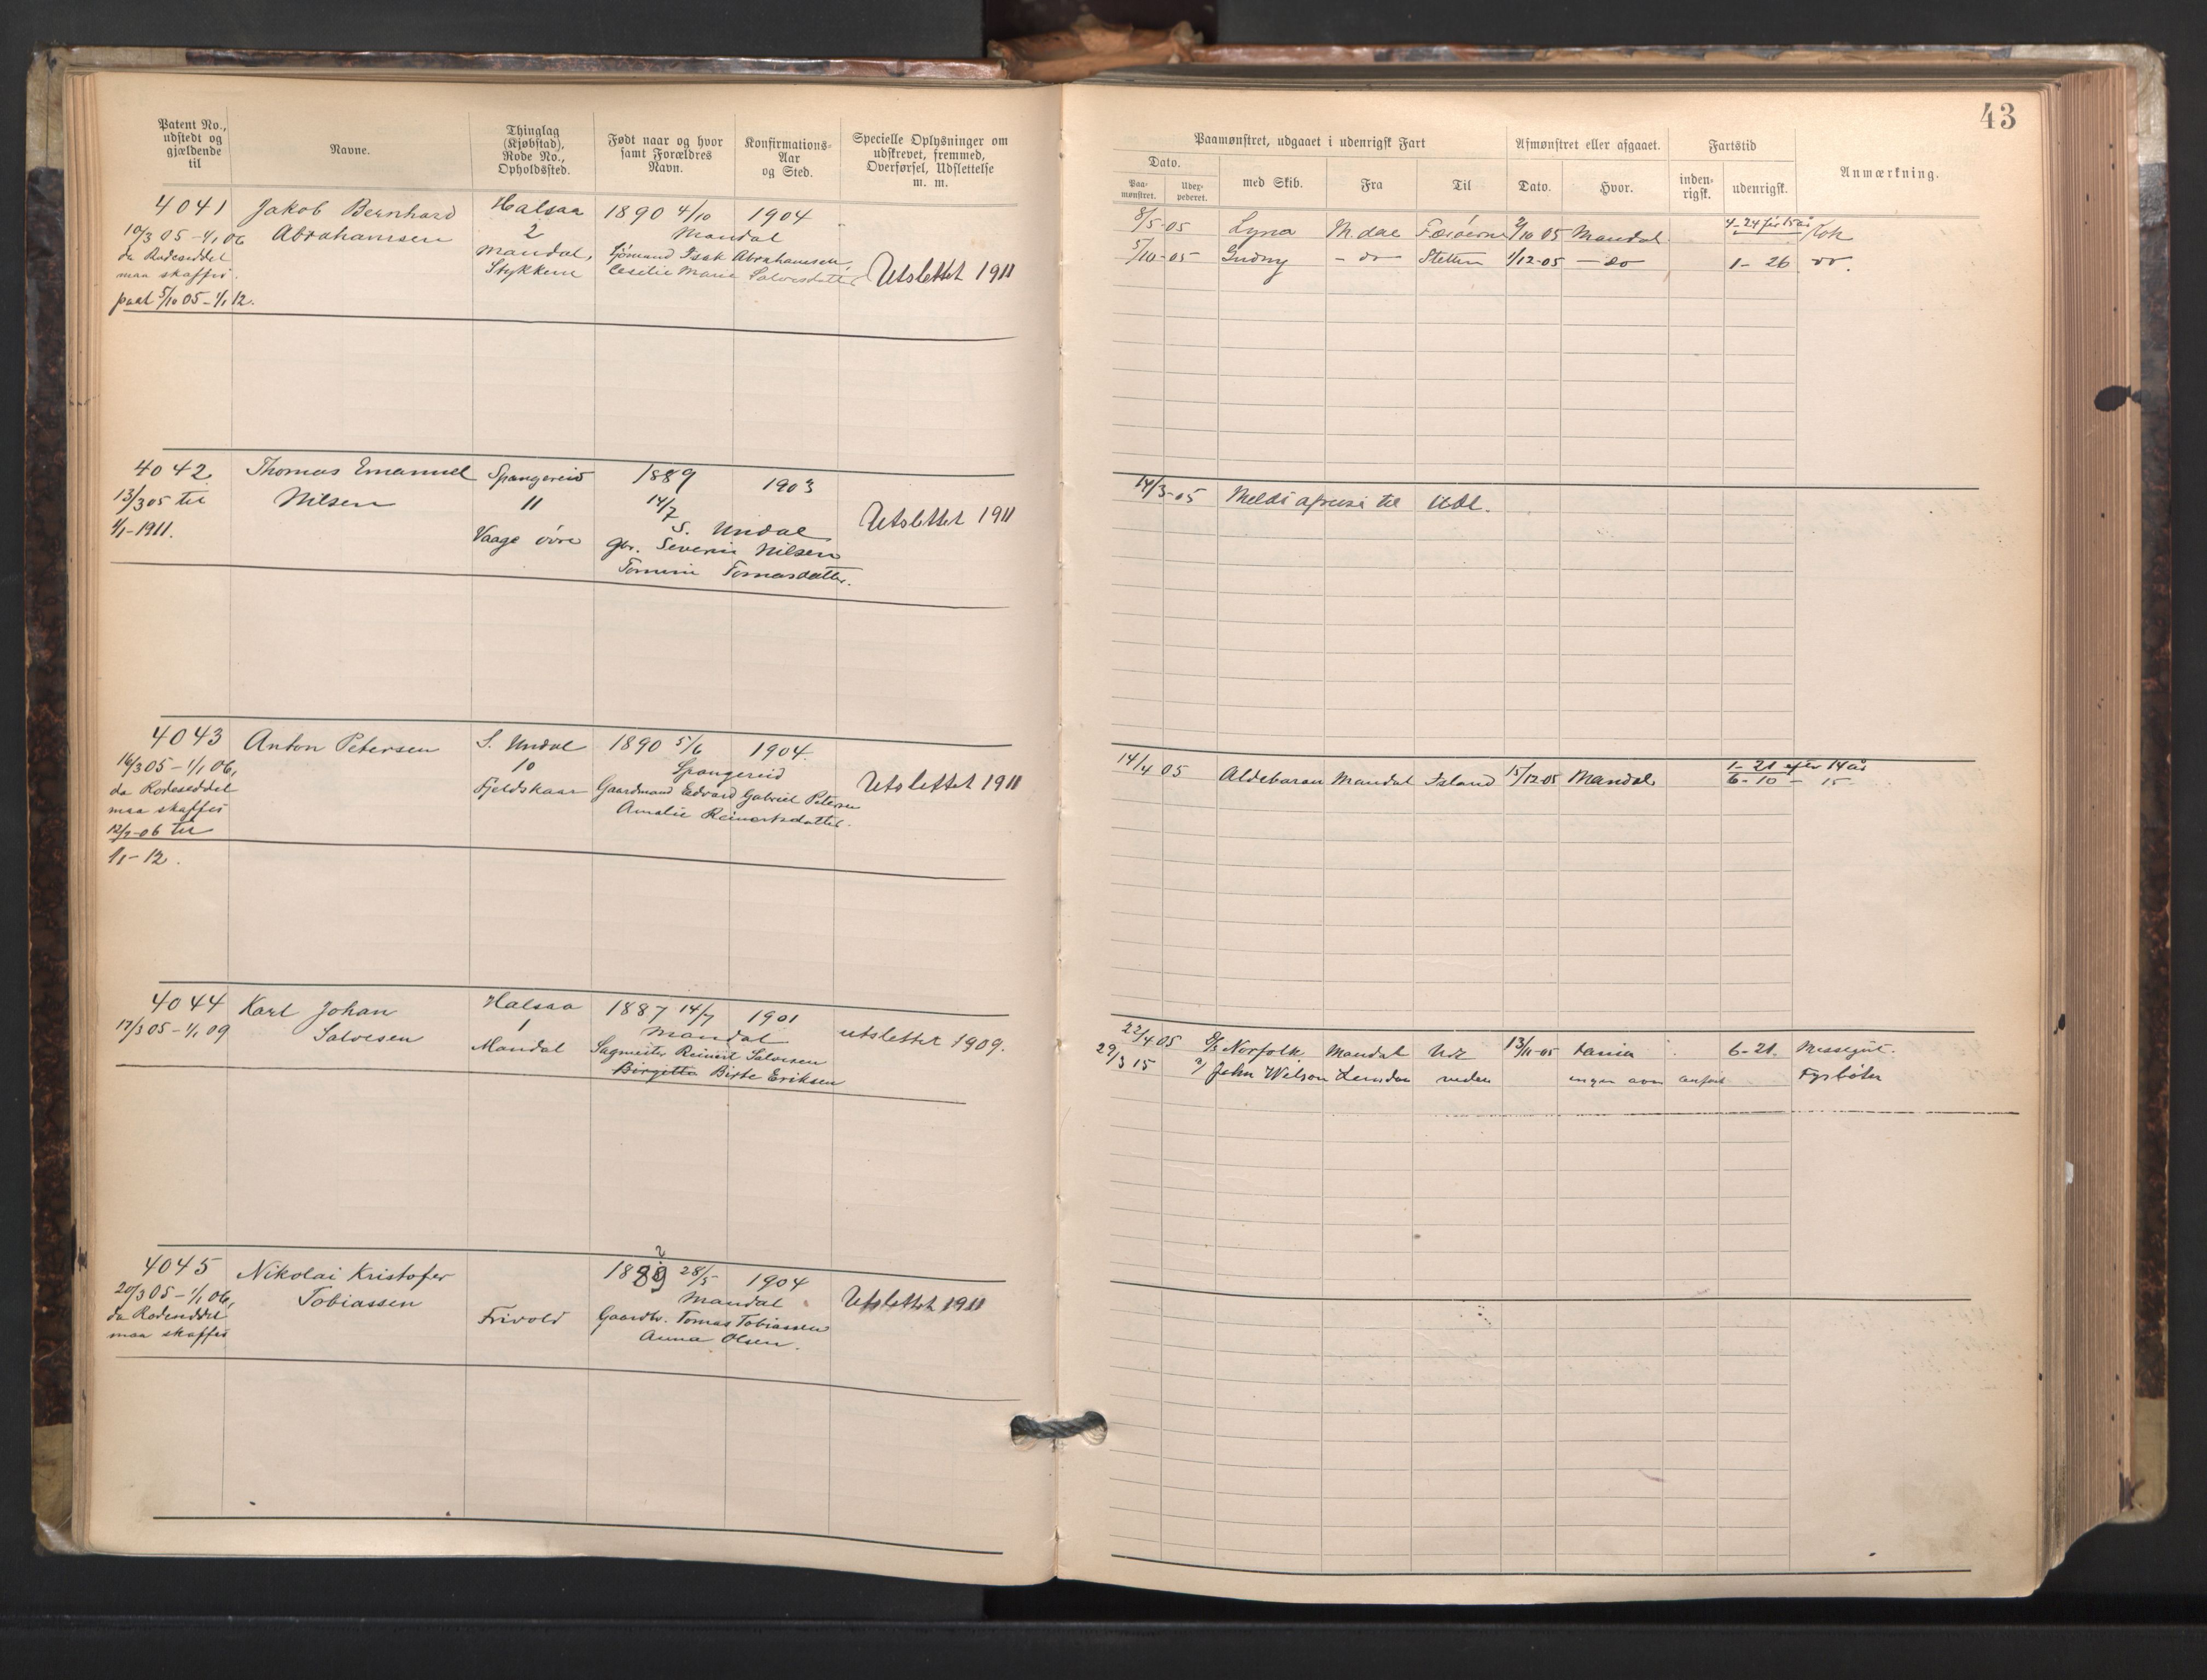 Patent No., udstedt og gjældende til
Navne.
Thinglag (Kjøbstad), Rode No., Opholdssted.
Født naar og hvor samt Forældres Navn.
Konfirmations-Aar og Sted.
Specielle Oplysninger om udskrevet, fremmed, Overførsel, Udslettelse m. m.
4041 Jakob Bernhard Halsaa 1890 4/10 1904
10/3 05 - 1/1 06 Abrahamsen 2 Mandal
da Rodeseddel Mandal, Sjømand Isak Abrahamsen,
maa skaffes. Stykkene Cecilie Marie Salvesdatter Utslettet 1911
paal 5/10 05 - 1/1 12.
4042 Thomas Emanuel Spangereid 1889 1903
13/3 05 til Nilsen 11 14/7 Utslettet 1911
1/1-1911. Vaage øvre S. Undal
gbr. Severin Nilsen
Tomine Tomasdatter.
4043 Anton Petersen S. Undal 1890 5/6 1904.
16/3 05 - 1/1 06, 10 Spangereid
da Rodeseddel Fjeldskaar Gaardmand Edvard Gabriel Petersen Utslettet 1911
maa skaffes Amalie Reinertsdatter.
12/2-06 til
1/1-12.
4044 Karl Johan Halsaa 1887 14/7 1901
17/3 05 - 1/1 09 Salvesen 1 Mandal utslettet 1909.
Mandal Sagmester Reinert Salvesen
Birgitta Birte Eriksen
4045 Nikolai Kristofer 1889 28/5 1904
20/3 05 - 1/1 06, Tobiassen Mandal Utslettet 1911
da Rodeseddel Frivold Gaardbr. Tomas Tobiassen
maa skaffes Anna Olsen.
43
Paamønstret, udgaaet i udenrigsk Fart
Afmønstret eller afgaaet.
Fartstid
Anmærkning.
Dato.
Paa-mønstret.
Uder-pederet.
med Skib.
Fra
Til
Dato.
Hvor.
inden-rigsk.
udenrigsk.
8/5-05 Lyna M.dal Færøerne 2/10 05 Mandal 4-24 før 15 år Kok
5/10-05 Gudny - do Stettin 1/12-05 - do 1-26 do.
14/3-05 Meldt afreise til Udl.
14/4 05 Aldebaran Mandal Island 15/12 05 Mandal 1-21 efter 14 år
6-10 - 15
22/4 05 S/S Norfolk Mandal Udl 13/11-05 6-21. Messegut.
29/3 15 John Wilson London Fyrbøter